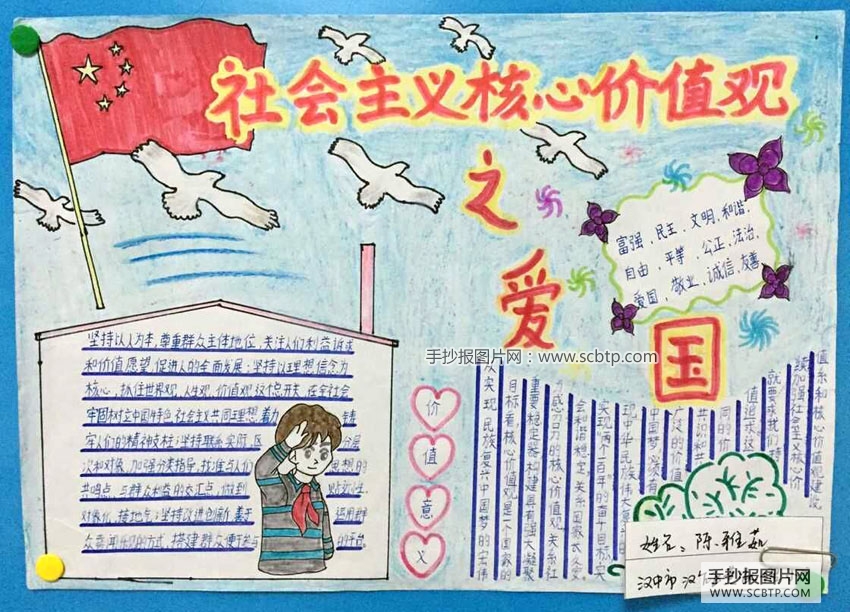 社会主义核心价值观
之
爱
国
富强、民主、文明、和谐、
自由、平等、公正、法治、
爱国、敬业、诚信、友善
手抄报图片网:www.scbtp.com
坚持以人为本,尊重群众主体地位,关注人们利益诉求
和价值愿望,促进人的全面发展;坚持以理想信念为
核心,抓住世界观、人生观、价值观这个总开关,在全社会
牢固树立中国特色社会主义共同理想,着力
人们的精神支柱;坚持联系实际,区 分层
次和对象,加强分类指导,找准与人们 思想的
共鸣点、与群众利益的交汇点,做到 贴近性、
对象化、接地气;坚持改进创新,善于 运用群
众喜闻乐见的方式,搭建群众便于参与 的平台,
价
值
意
义
值体系和核心价值观建设
续加强社会主义核心价
就要求我们持
值追求这
同的价
共识和
广泛的价值
中国梦必须有
现中华民族伟大复兴的
实现“两个百年”的奋斗目标、实
会和谐稳定、关系国家长治久安
感召力的核心价值观,关系社
重要稳定器,构建具有强大凝聚
目标看,核心价值观是一个国家的
从实现民族复兴中国梦的宏伟
姓名:陈雅茹
汉中市汉
手抄报图片网
WWW.SCBTP.COM